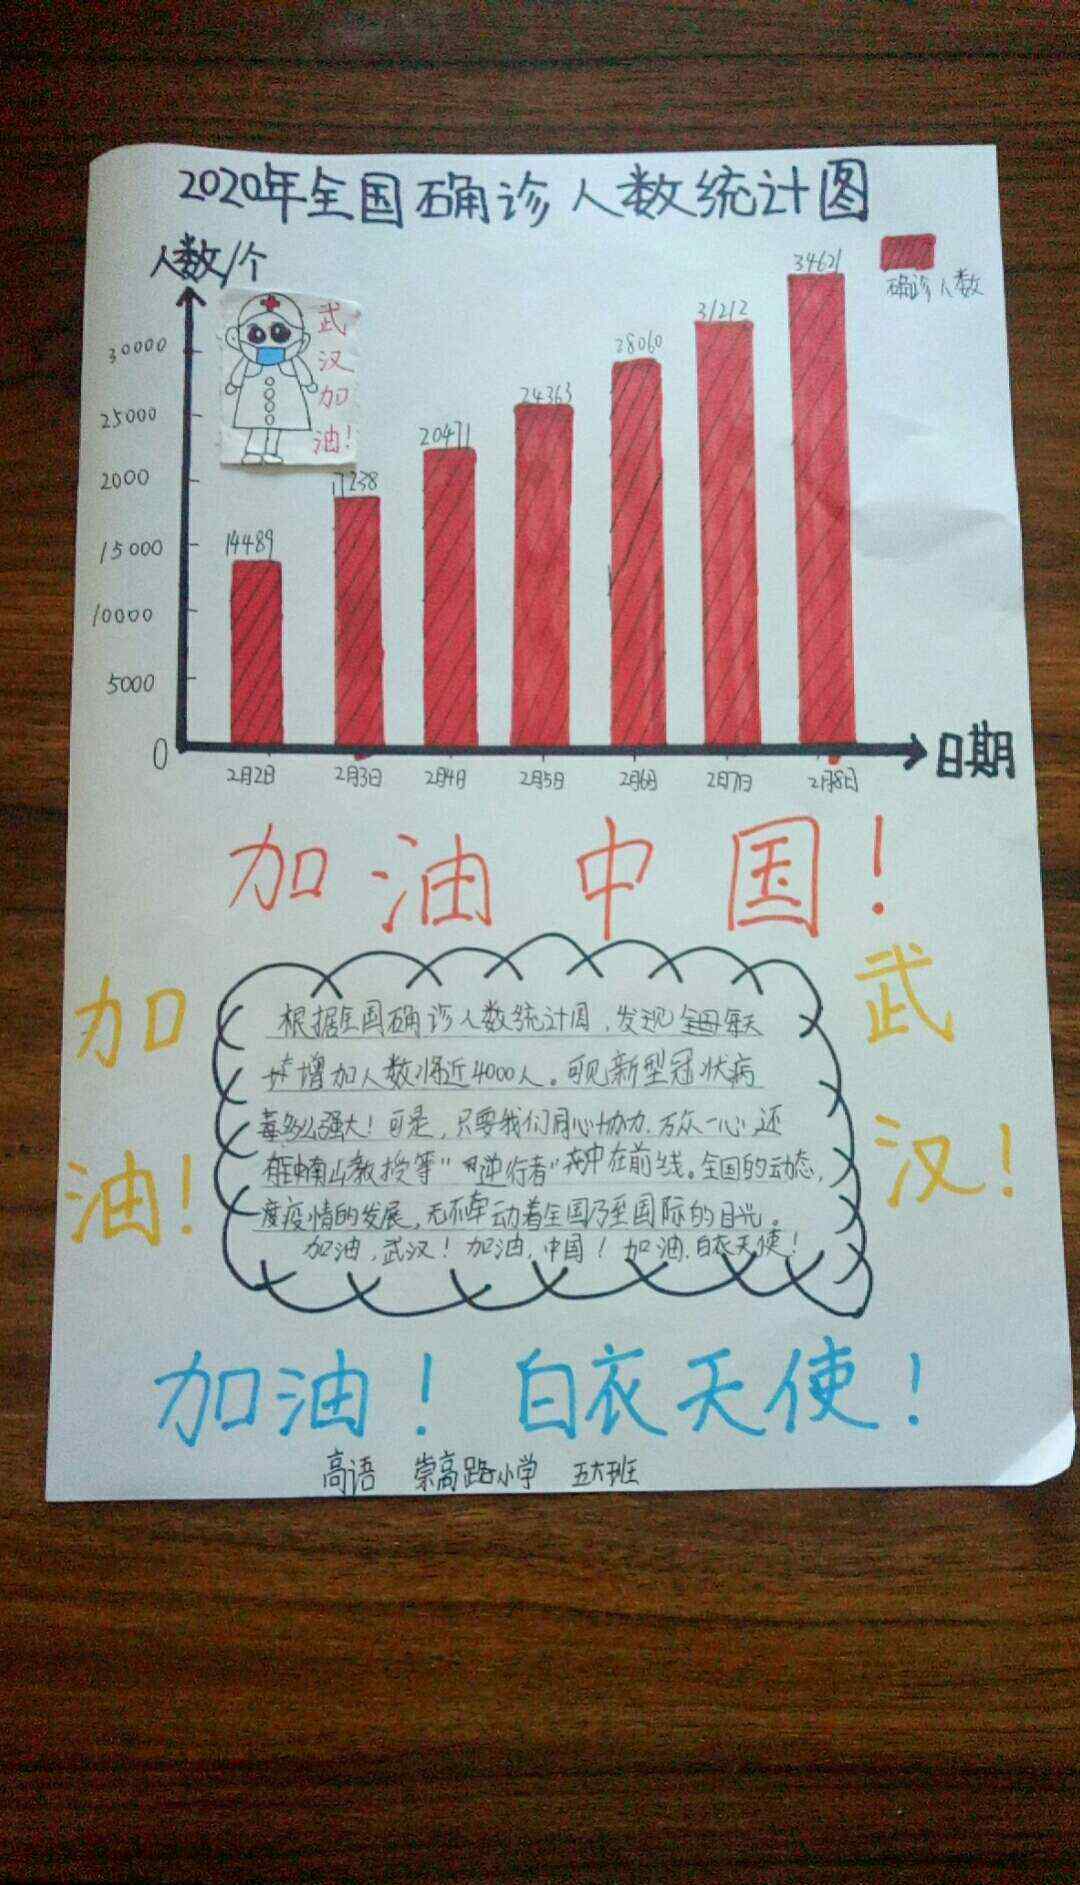 2020年全国确诊人数统计图
人数/个
确诊人数
武
汉
加
油!
34621
31212
28060
24363
20471
17238
14489
30000
25000
2000
15000
10000
5000
0
2月2日 2月3日 2月4日 2月5日 2月6日 2月7日 2月8日
日期
加油中国!
加
油!
武
汉!
根据全国确诊人数统计图,发现每天
增加人数将近4000人。可见新型冠状病
毒多么强大!可是,只要我们同心协力,万众一心,还
有钟南山教授等"逆行者"冲在前线。全国的动态,
度疫情的发展,无不牵动着全国乃至国际的目光。
加油,武汉!加油,中国!加油,白衣天使!
加油!白衣天使!
高语 崇高路小学 五六班